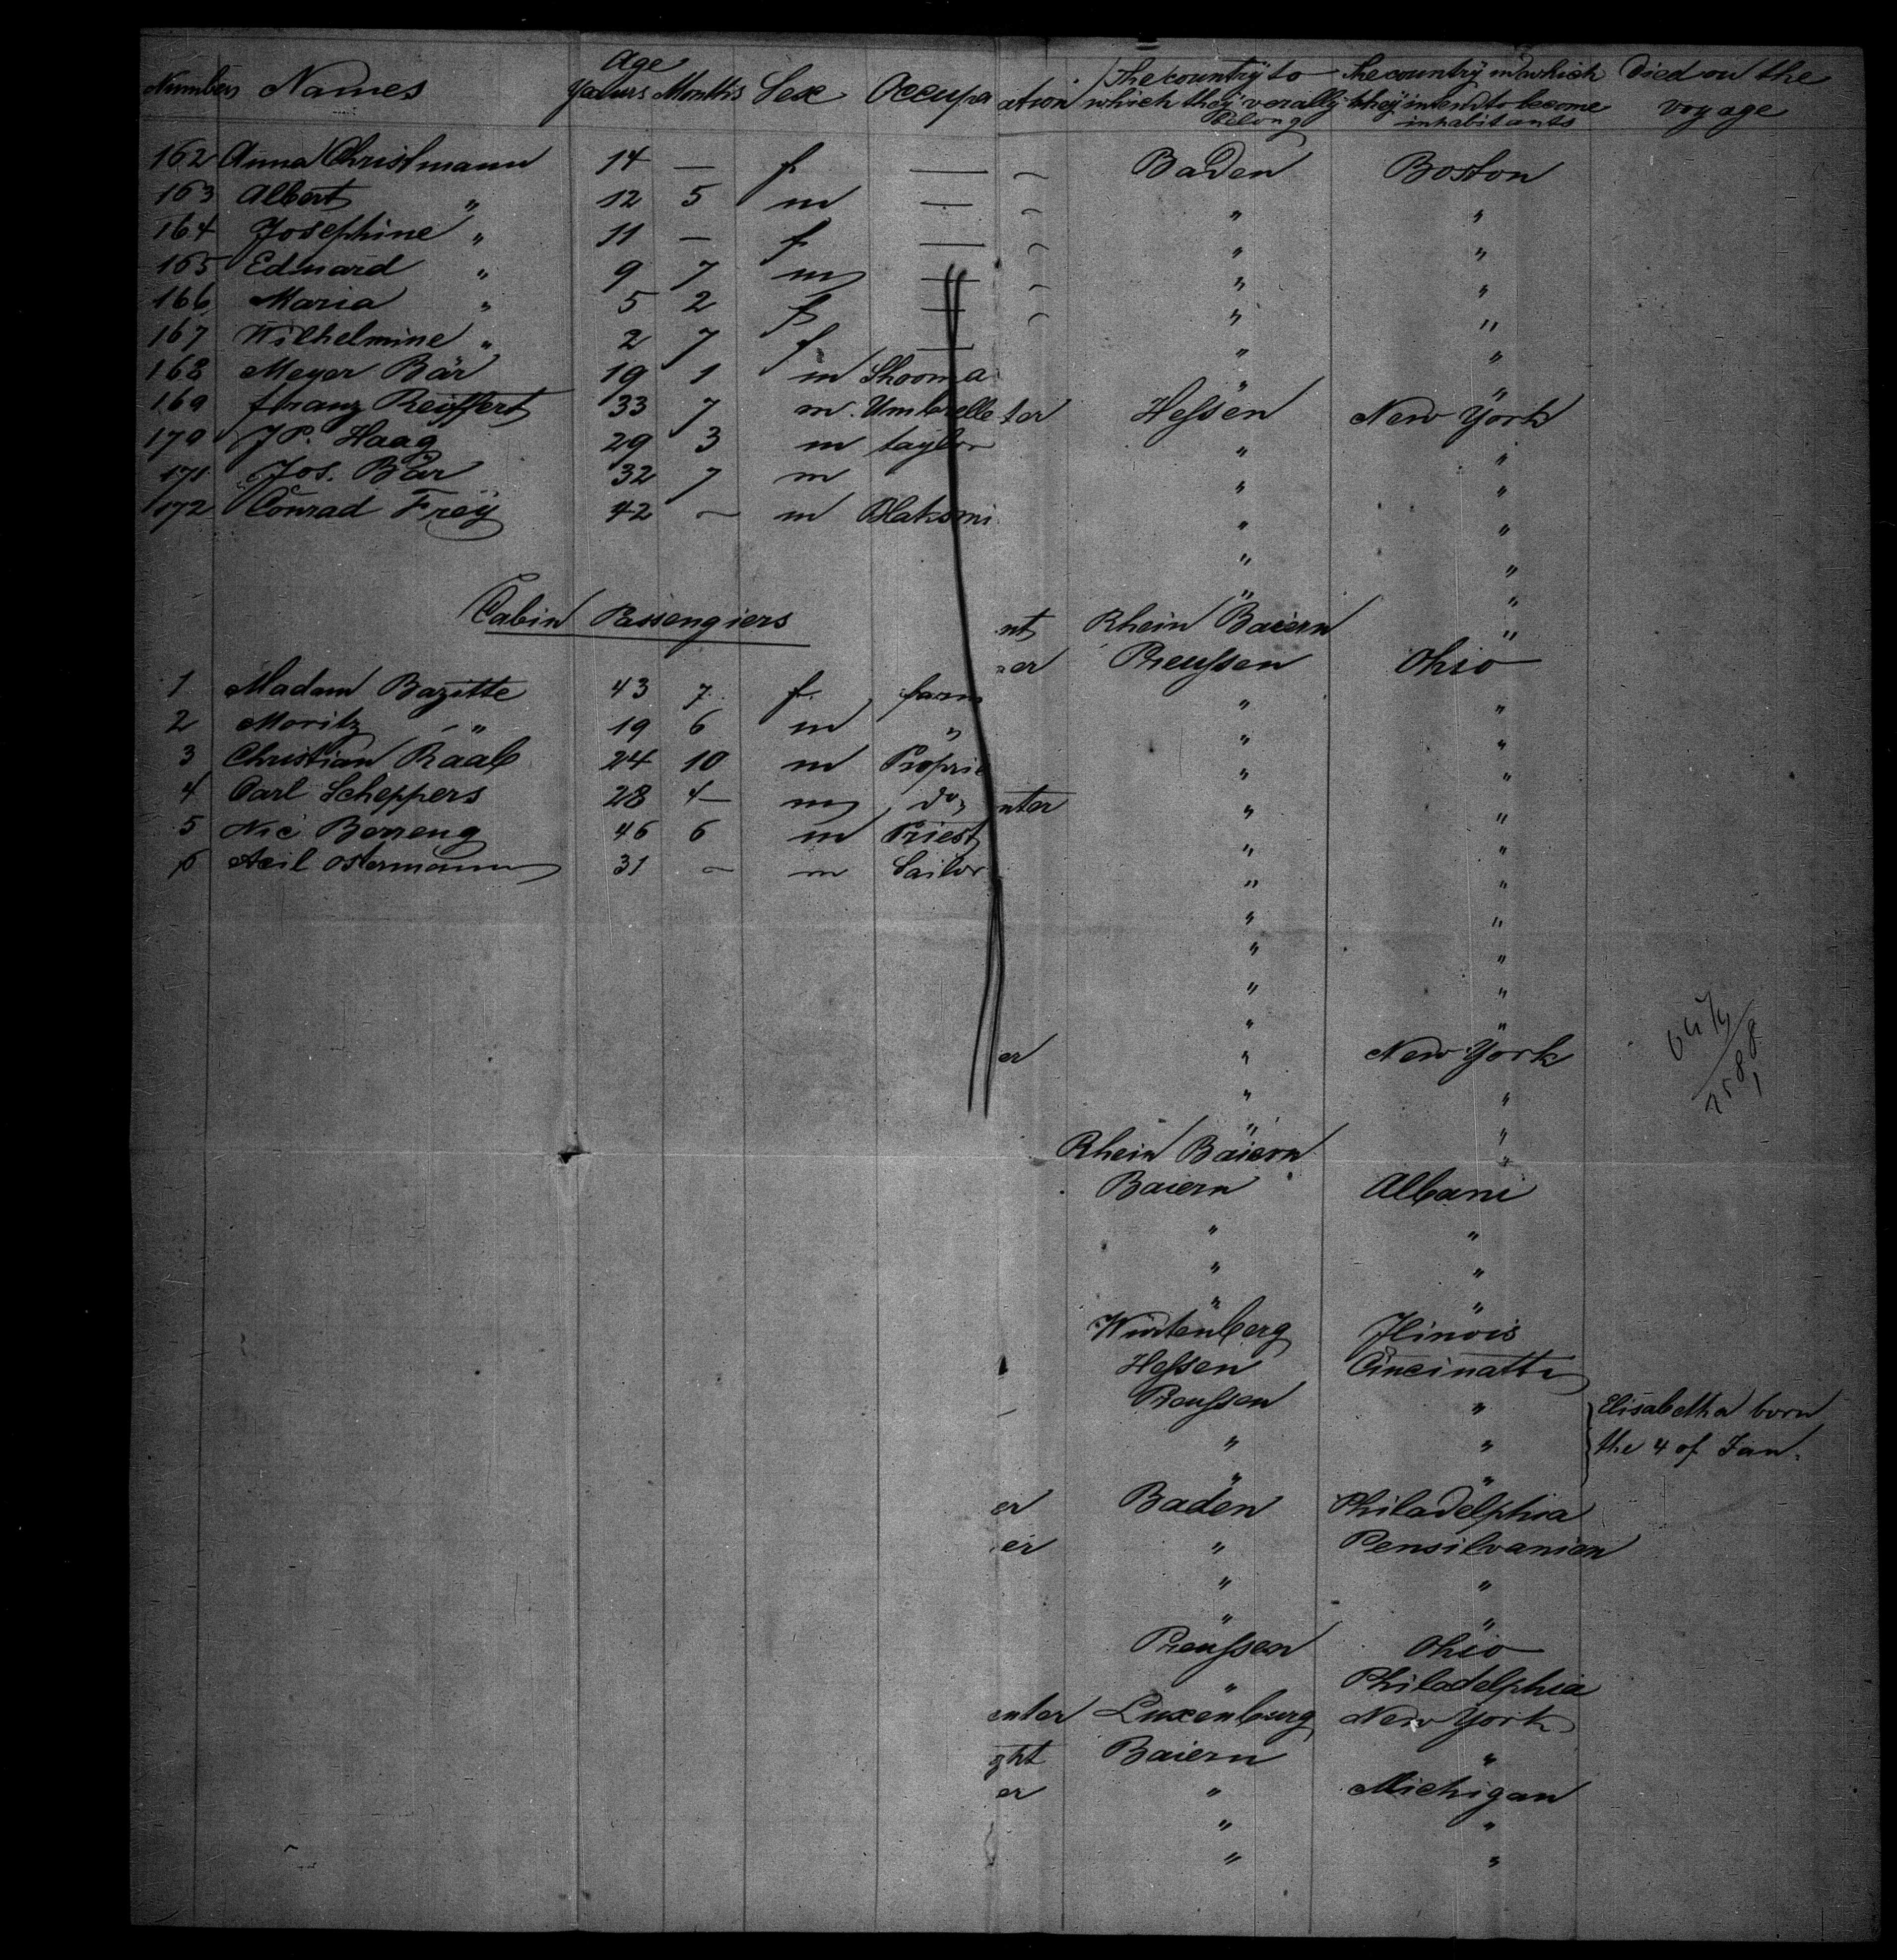 Numbers Names Age Years Months Sex Occupa ation The country to which they verally belong The country in which they intend to become inhabitants Died on the voyage
162 Anna Christmann 14 — f — Baden Boston
163 Albert " 12 5 m — " "
164 Josephine " 11 — f — " "
165 Eduard " 9 7 m — " "
166 Maria " 5 2 f — " "
167 Wilhelmine " 2 7 f — " "
168 Meyer Bär 19 1 m Shooma " "
169 franz Reyffert 33 7 m Umbrelle ter Hessen New York
170 J P. Haag 29 3 m taylor " "
171 Jos. Bär 32 7 m " "
172 Conrad Freÿ 42 – m Blaksmi " "
" "
" "
Cabin Passengiers
nt Rhein Baiern "
er Preussen Ohio
1 Madam Bazitte 43 7 f farm " "
2 Moritz " 19 6 m " " "
3 Christian Raab 24 10 m Proprie " "
4 Carl Scheppers 28 4 m do nter " "
5 Nic Berreng 46 6 m Priest " "
6 Acil Ostermann 31 – m Sailor " "
" "
" "
" "
" "
er " New York
" "
" "
Rhein Baiern "
Baiern Albani
" "
" "
" "
Würtenberg Ilinois
Hessen Cincinatti
Preussen " Elisabetha born
" " the 4 of Jan.
" "
er Baden Philadelphia
er " Pensilvanien
" "
" "
Preussen Ohio
" Philadelphia
enter Luxenburg New York
ght Baiern "
er " Michigan
" "
" "